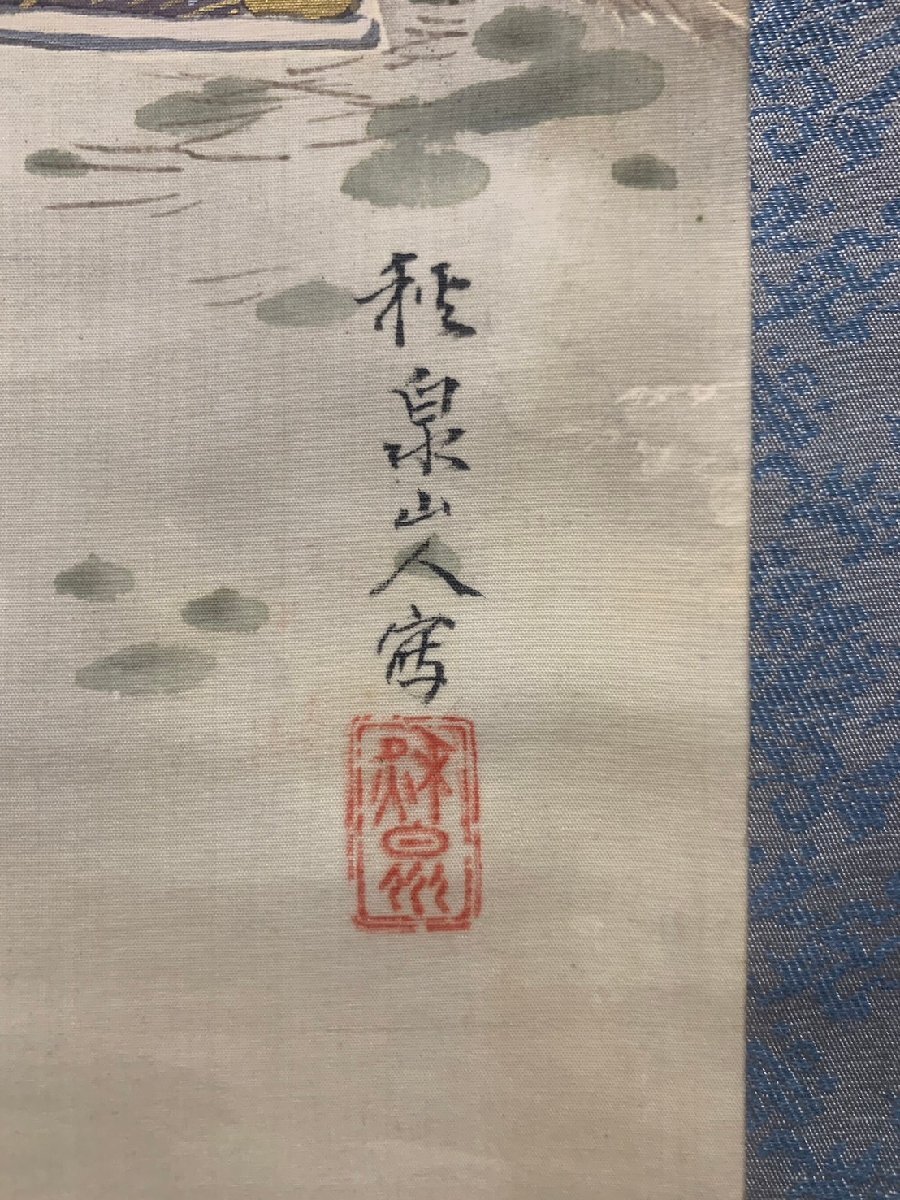 秋泉山人寫
秋泉